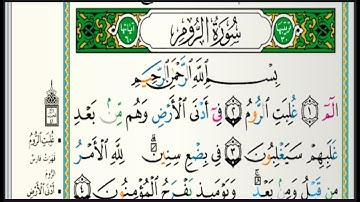 ترتيبها ٣٠
سُورَةُ الرُّومِ
آياتها ٦٠
بِسْمِ اللَّهِ الرَّحْمَٰنِ الرَّحِيمِ
الٓمٓ ١ غُلِبَتِ ٱلرُّومُ ٢ فِيٓ أَدْنَى ٱلْأَرْضِ وَهُم مِّنۢ بَعْدِ
غَلَبِهِمْ سَيَغْلِبُونَ ٣ فِي بِضْعِ سِنِينَ ۗ لِلَّهِ ٱلْأَمْرُ
مِن قَبْلُ وَمِنۢ بَعْدُ ۚ وَيَوْمَئِذٍ يَفْرَحُ ٱلْمُؤْمِنُونَ ٤
غُلِبَتِ ٱلرُّومُ
قهرت فارس
الروم
أَدْنَى ٱلْأَرْضِ